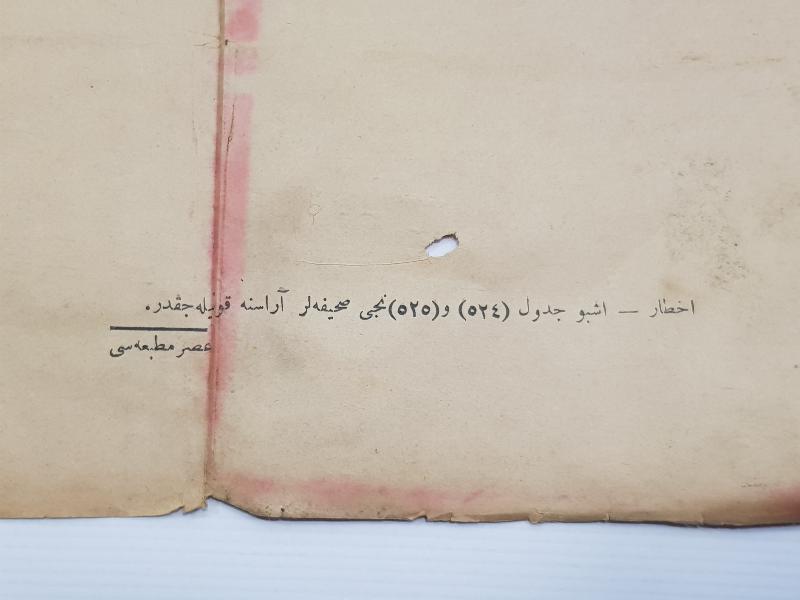 اخطار — اشبو جدول (٥٢٤) و(٥٢٥)نجی صحیفه‌لر آراسنه قونیله‌جقدر.
عصر مطبعه‌سی